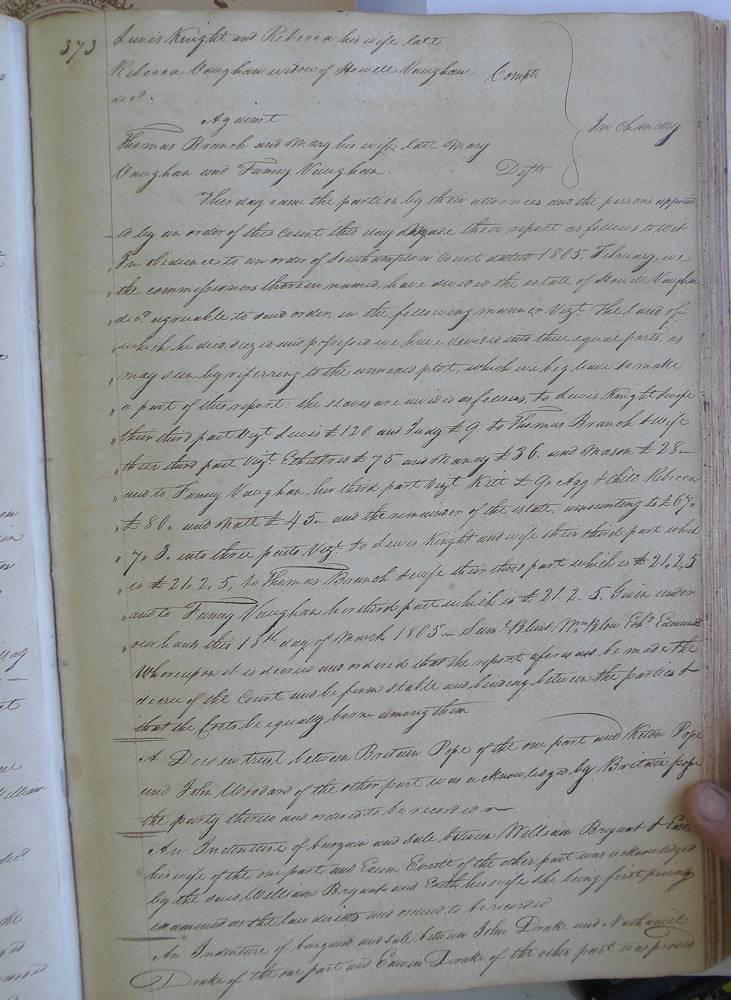 373 Lewis Knight and Rebecca his wife late
Rebecca Vaughan widow of Howell Vaughan Complts
decd.
In Chancery
Against
Thomas Branch and Mary his wife late Mary
Vaughan and Fanny Vaughan. Defts
This day came the parties by their attornies and the persons appoint
-ed by an order of this Court this day made their report as follows towit
In obedience to an order of Southampton Court dated 1805, February, we
the commissioners therein named, have divided the estate of Howell Vaughan
decd. agreable to said order, in the following manner Vizt. The land of
which he died seized and possessed we have devided into three equal parts, as
may seen by referring to the annexed plot, which we beg leave to make
a part of this report. the slaves are divided as follows, to Lewis Knight & wife
their third part Vizt. Lewis £120 and Judy £9. to Thomas Branch & wife
their third part Vizt. £75 and Mandy £36. and Mason £28—
and to Fanny Vaughan her third part Vizt. Kitt £9. Agg & Child Rebecca
£80. and Matt £45— and the remainder of the estate, amounting to £67.
7.3. into three parts Vizt. to Lewis Knight and wife their third part which
is £21.2.5, to Thomas Branch & wife their third part which is £21.2.5
and to Fanny Vaughan her third part which is £21.2.5. Given under
our hands this 18th day of March 1805— Saml. Blunt Wm Blow Edwd. Edmunds
Whereupon it is decreed and ordered that the report aforesaid be made the
decree of the Court and be firm stable and binding between the parties &
that the Costs be equally borne among them
A Deed in trust between Britain Pope of the one part and Pope
and John Woodard of the other part was acknowledged by Britain pope
the party thereto and ordered to be recorded
An Indenture of bargain and sale between William Bryant &
his wife of the one part and Edwin of the other part was acknowledged
by the said William Bryant and his wife she being first privily
examined as the law directs and ordered to be recorded
An Indenture of bargain and sale between John Drake and Nathaniel
Drake of the one part and Edwin Drake of the other part was proved